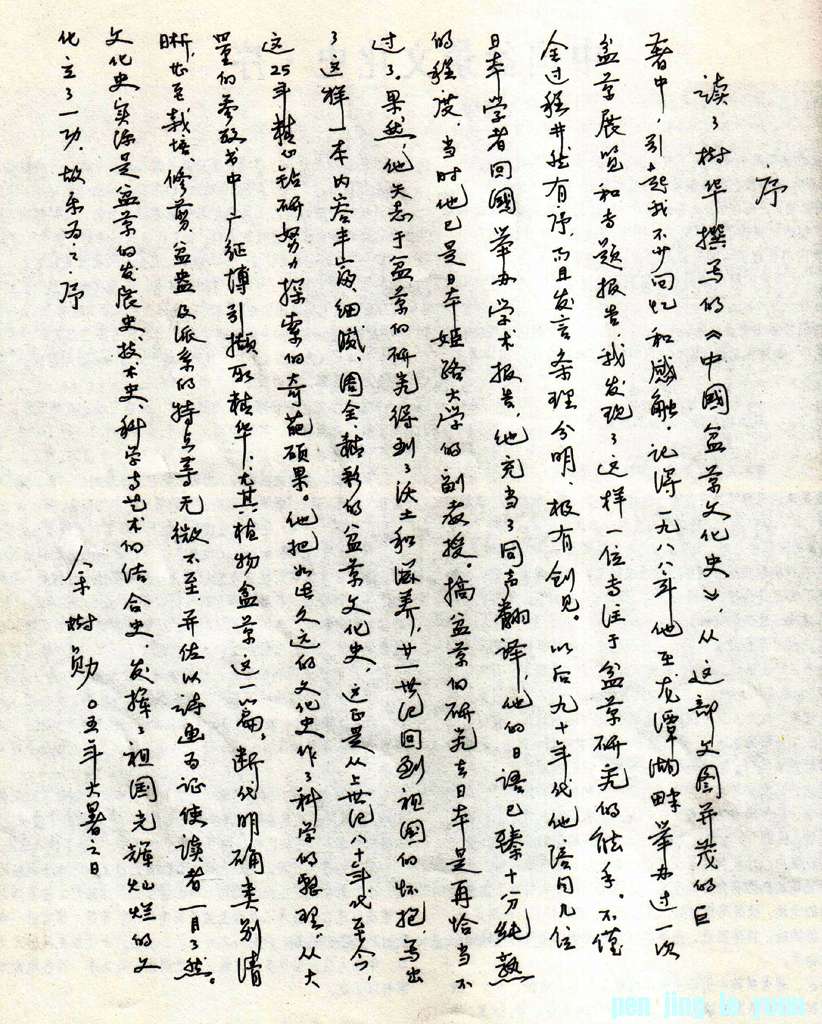 序
读了树华撰写的《中國盆景文化史》，从这部文图并茂的巨
著中，引起我不少回忆和感触，记得一九八八年他在龙潭湖畔举办过一次
盆景展览和专题报告，我发现了这样一位专注于盆景研究的能手。不僅
全过程井然有序，而且发言条理分明、极有创见。以后九十年代他陪同几位
日本学者回國举办学术报告，他充当了同声翻译，他的日语已臻十分純熟
的程度，当时他已是日本姬路大学的副教授。搞盆景的研究去日本是再恰当不
过了。果然，他矢志于盆景的研究得到了沃土和滋养，廿一世记回到祖国的怀抱，写出
了这样一本内容丰富、细腻、周全、精彩的盆景文化史，这正是从上世记八十年代至今，
这25年精心钻研努力探索的奇葩硕果。他把如此久远的文化史作了科学的整理，从大
量的参攷书中广征博引撷取精华，尤其植物盆景这一篇，断代明确类别清
晰，甚至栽培、修剪、盆盎及派系的特点等无微不至，并佐以诗画为证使读者一目了然。
文化史实际是盆景的发展史、技术史、科学与艺术的结合史，发挥了祖国光辉灿烂的文
化立了一功，故乐为之序
余树勋 〇五年大暑之日
pen jing le yuan